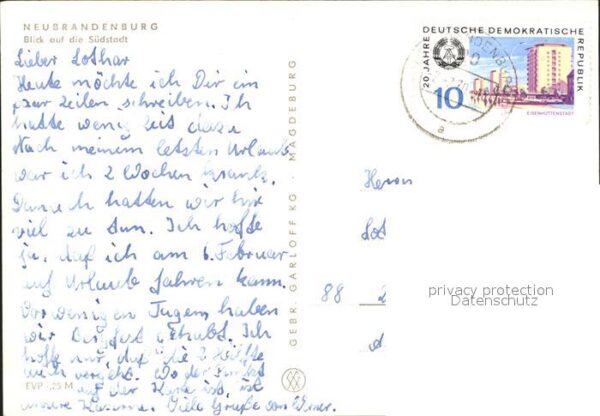 NEUBRANDENBURG
Blick auf die Südstadt
Lieber Lothar
Heute möchte ich Dir ein
paar Zeilen schreiben. Ich
hatte wenig Zeit dazu
Nach meinem letzten Urlaub
war ich 2 Wochen krank.
Danach hatten wir hier
viel zu tun. Ich hoffe
ja, daß ich am 6. Februar
auf Urlaub fahren kann.
Vor wenigen Tagen haben
wir Bergfest gehabt. Ich
hoffe nur, daß die 2 Hälfte
auch vergeht. Wo der Punkt
auf der Karte ist, ist
unsere Kaserne. Viele Grüße von
EVP -,25 M
GEBR. GARLOFF KG · MAGDEBURG
20 JAHRE DEUTSCHE DEMOKRATISCHE REPUBLIK
10
EISENHÜTTENSTADT
a
Herrn
Lot
88 2
privacy protection
Datenschutz